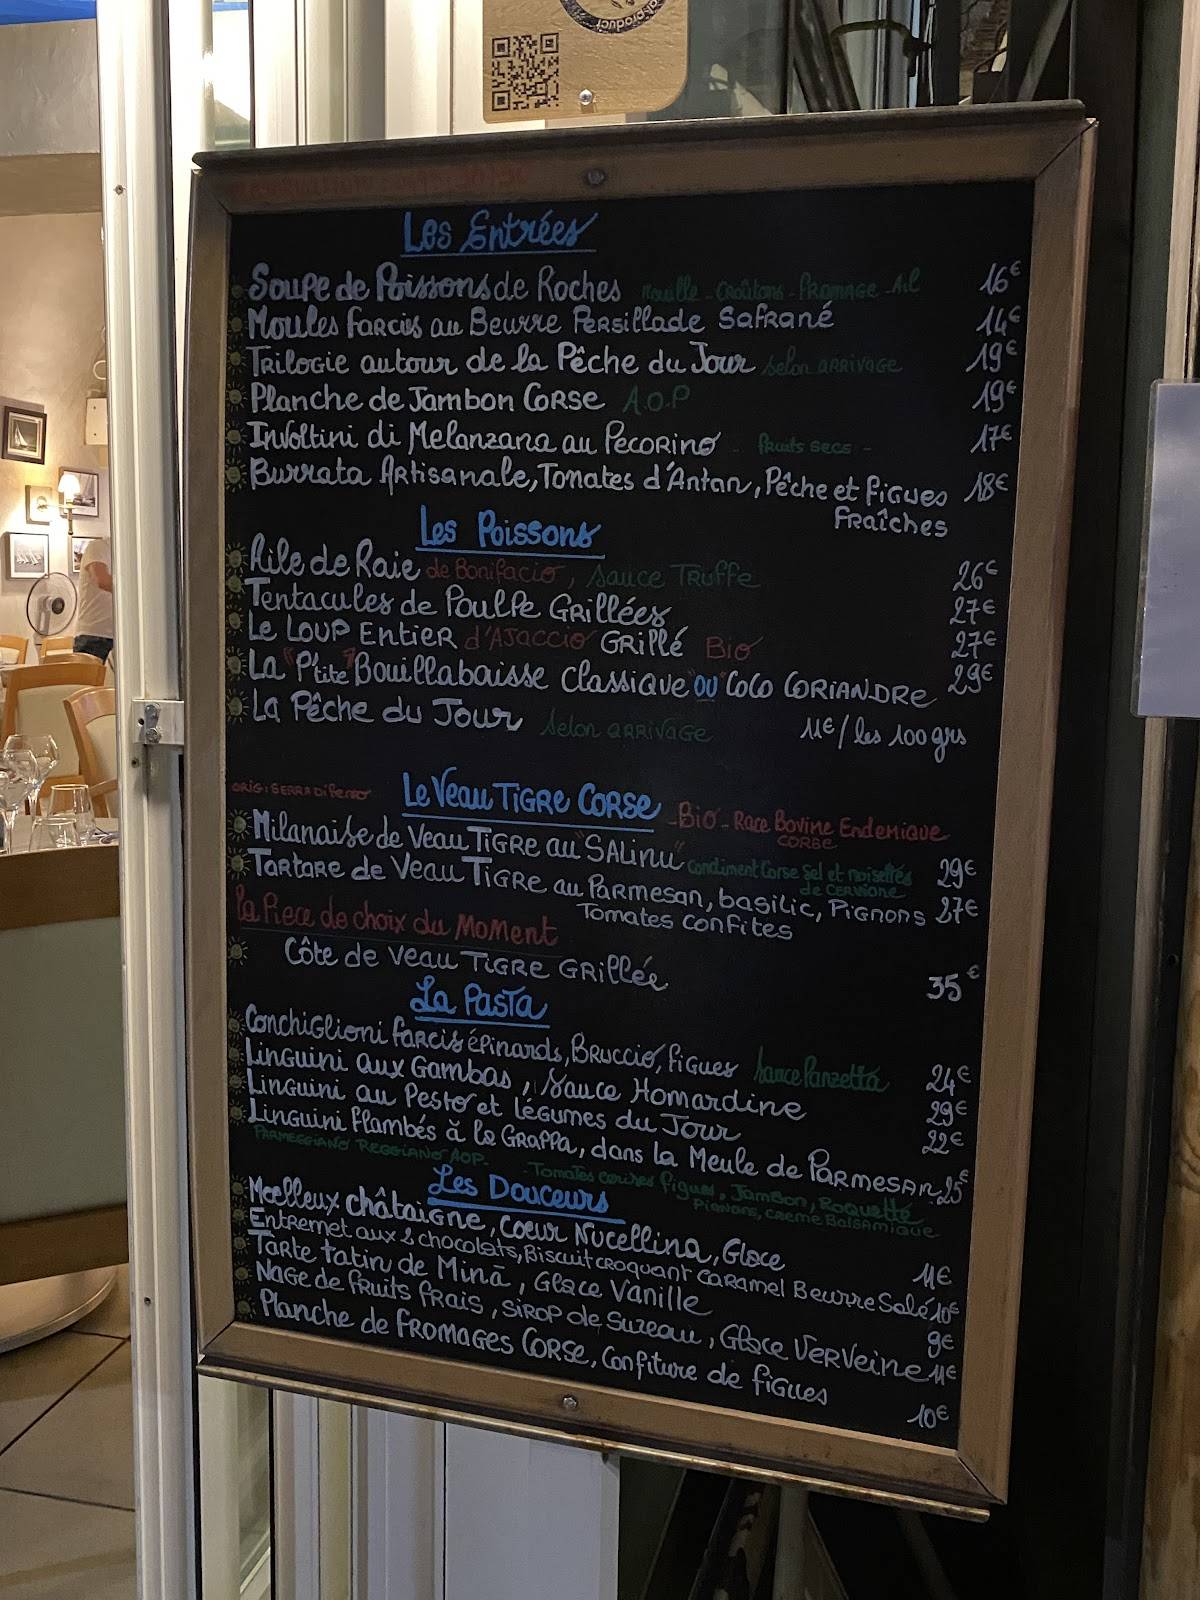 product
Les Entrées
Soupe de Poissons de Roches Rouille - Croûtons - Fromage - Ail 16€
Moules Farcies au Beurre Persillade Safrané 14€
Trilogie autour de la Pêche du Jour selon arrivage 19€
Planche de Jambon Corse A.O.P 19€
Involtini di Melanzana au Pecorino - Fruits secs - 17€
Burrata Artisanale, Tomates d'Antan, Pêche et Figues 18€
Fraîches
Les Poissons
Aile de Raie de Bonifacio, Sauce Truffe 26€
Tentacules de Poulpe Grillées 27€
Le Loup Entier d'Ajaccio Grillé Bio 27€
La "P'tite" Bouillabaisse Classique "ou" Coco Coriandre 29€
La Pêche du Jour selon arrivage 11€/les 100grs
Orig: Serra di Ferro Le Veau Tigre Corse - Bio - Race Bovine Endemique
Corse
Milanaise de Veau Tigre au "Salinu" Condiment Corse Sel et noisettes 29€
de Cervione
Tartare de Veau Tigre au Parmesan, basilic, Pignons 27€
Tomates confites
La Piece de choix du Moment
Côte de Veau Tigre Grillée 35€
La Pasta
Conchiglioni farcis épinards, Bruccio, figues Sauce Panzetta 24€
Linguini aux Gambas, Sauce Homardine 29€
Linguini au Pesto et légumes du Jour 22€
Linguini Flambés à la Grappa, dans la Meule de Parmesan 25€
Parmeggiano Reggiano AOP. - Tomates cerises figues, Jambon, Roquette
Pignons, creme Balsamique
Les Douceurs
Moelleux châtaigne, coeur Nucellina, Glace 11€
Entremet aux 2 chocolats, Biscuit croquant Caramel Beurre Salé 10€
Tarte tatin de Minà, Glace Vanille 9€
Nage de fruits frais, sirop de Suzeau, Glace Verveine 11€
Planche de Fromages Corse, Confiture de figues 10€